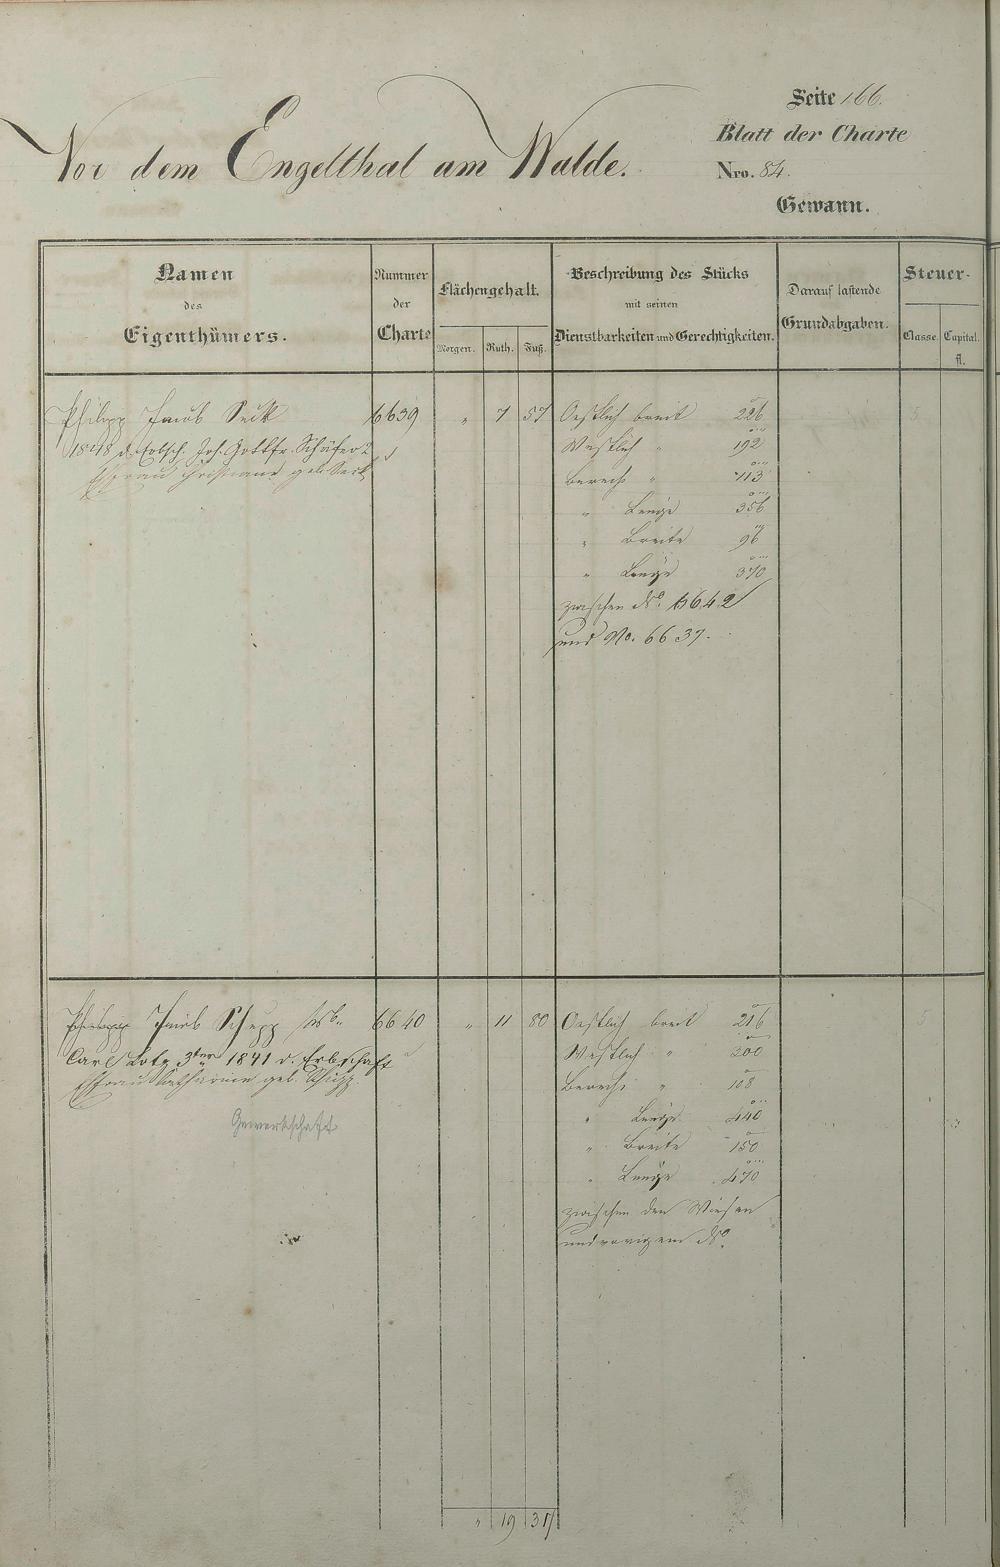 Seite 166.
Blatt der Charte
Vor dem Engelthal am Walde.
Nro. 84.
Gewann.
Namen
des
Eigenthümers.
Nummer
der
Charte
Flächengehalt.
Morgen. Ruth. Fuß.
Beschreibung des Stücks
mit seinen
Dienstbarkeiten und Gerechtigkeiten.
Darauf lastende
Grundabgaben.
Steuer-
Classe. Capital.
fl.
Philipp Jacob Seck 6639 „ 7 57 Oestlich breit 226
1848 d. Erbsch. Joh. Gottfr. Schäfer Westlich „ 192
Ehfrau Christiane geb. Seck berech: „ 113
„ Länge 356
„ Breite 96
„ Länge 370
zwischen No. 6642
und No. 6637.
Philipp Jacob Schupp 6640 „ 11 80 Oestlich breit 216
Carl Lotz 3ter 1841 d. Erbschaft Westlich „ 200
Ehfrau Katharine geb. Schupp. berech: „ 108
Gewerkschaft
„ Länge 440
„ Breite 150
„ Länge 470
zwischen den Wiesen
und vorigem No.
„ 19 37